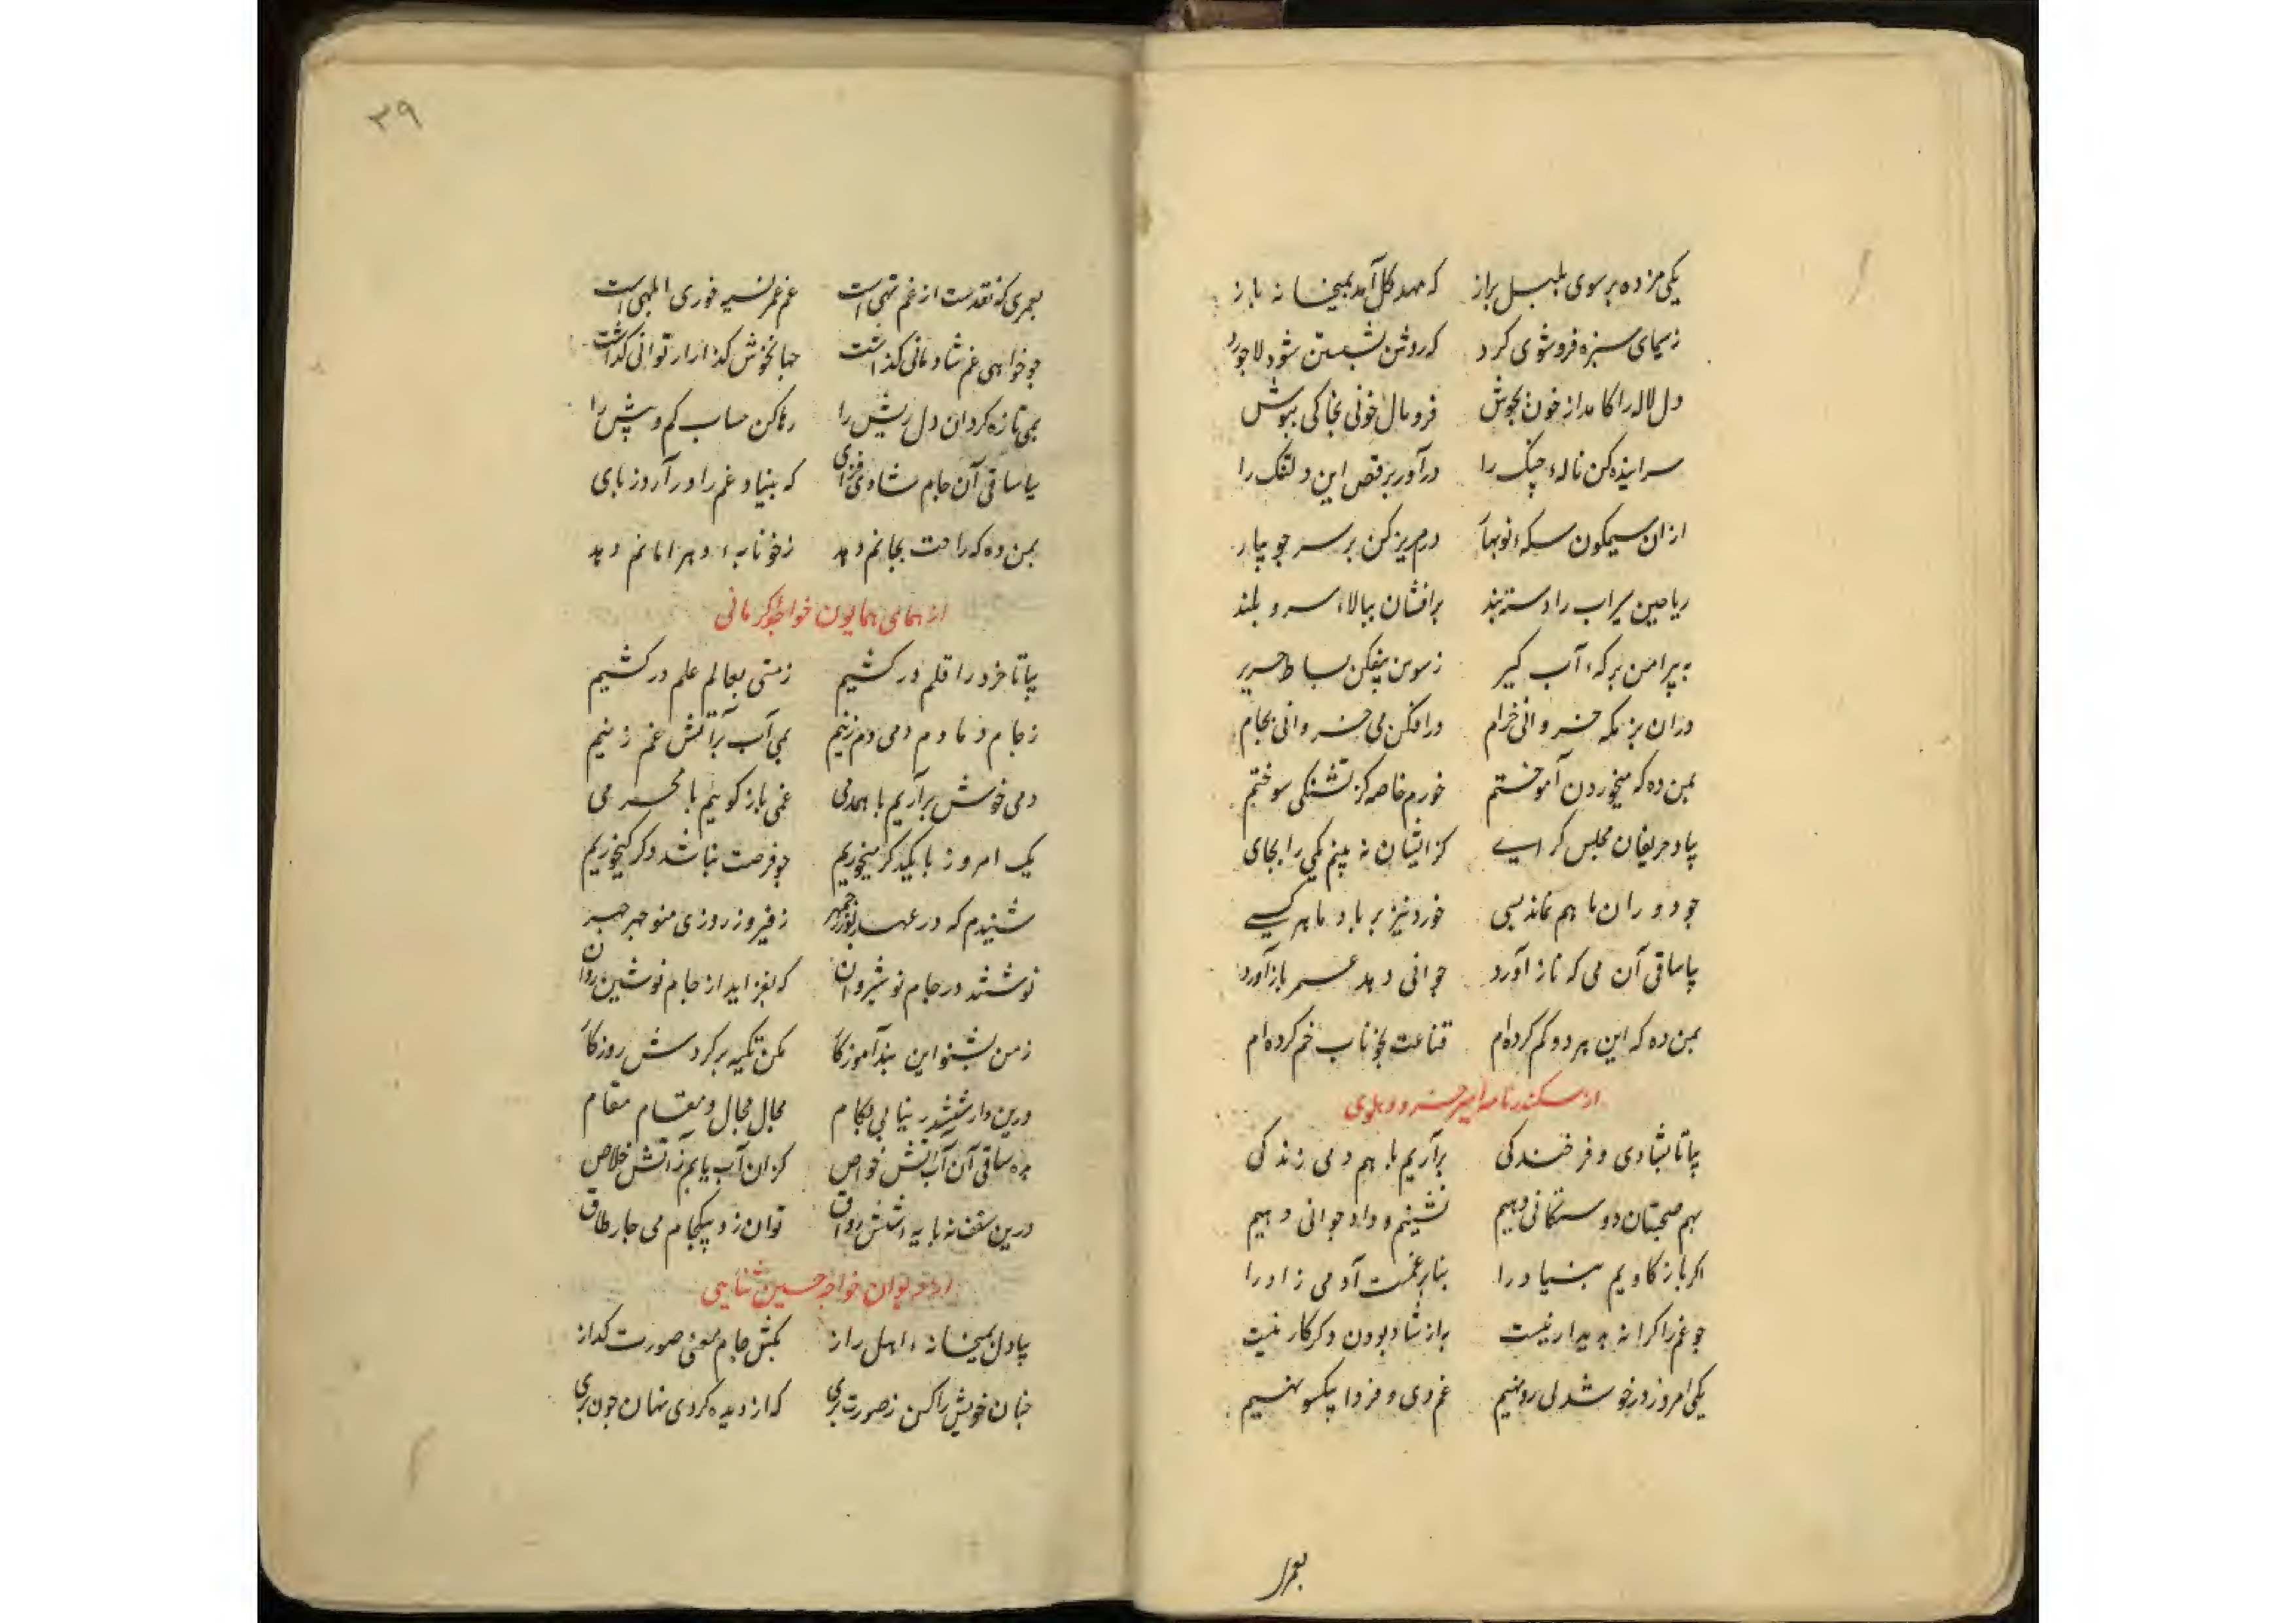 یکی مژده بر سوی بلبل براز که مهد گل آمد بمیخانه باز
ز سیمای سبزه فرو شوی گرد که روشن بشستن شود لاجورد
دل لاله را کامد از خون بجوش فرو مال خونی بخاکی بپوش
سراینده کن ناله چنگ را درآور برقص این دلتنگ را
ازان سیمگون سکه نوبهار درم ریز کن بر سر جویبار
ریاحین سیراب را دسته بند برافشان ببالا سرو بلند
به پیرامن برکه آب گیر ز سوسن بیفکن بساط حریر
دران بزمگه خسروانی خرام درافکن می خسروانی بجام
بمن ده که میخوردن آموختم خورم خاصه کز تشنگی سوختم
بیاد حریفان مجلس گرای کز ایشان نه بینم یکی را بجای
چو دوران ما هم نماند بسی خورد نیز بر یاد ما هر کسی
بیا ساقی آن می که ناز آورد جوانی دهد عمر باز آورد
بمن ده که این هر دو گم کرده ام قناعت بخوناب خم کرده ام
از سکندرنامه امیر خسرو دهلوی
بیا تا بشادی و فرخندگی برآریم با هم دمی زندگی
بهم صحبتان دوستگانی دهیم نشینیم و داد جوانی دهیم
اگر باز کاویم بنیاد را بنا بر غمست آدمی زاد را
چو غم را کرانه پدیدار نیست به از شاد بودن دگر کار نیست
یکی امروز در خوشدلی رو نهیم غم دی و فردا بیکسو نهیم
بعمری
۳۹
بعمری که نقدست از غم تهی است غم عمر نسیه خوری ابلهی است
چو خواهی غم شادمانی گذاشت جهان خوش گذار ار توانی گذاشت
بمی تازه گردان دل ریش را رها کن حساب کم و بیش را
بیا ساقی آن جام شادی فزای که بنیاد غم را درآرد ز پای
بمن ده که راحت بجانم دهد ز خونابه دهر امانم دهد
از همای همایون خواجو کرمانی
بیا تا خرد را قلم درکشیم ز مستی بعالم علم درکشیم
ز جام دمادم دمی دم زنیم بمی آب بر آتش غم زنیم
دمی خوش برآریم با همدمی غمی باز گوییم با محرمی
یک امروز با یکدگر میخوریم چو فرصت نباشد دگر کی خوریم
شنیدم که در عهد بوزرجمهر ز فیروز روزی منوچهر چهر
نوشتند در جام نوشیروان که بفزاید از جام نوشین روان
ز من بشنو این پند آموزگار مکن تکیه بر گردش روزگار
درین دار ششدر نیابی بکام مجال مجال و مقام مقام
بده ساقی آن آب آتش خواص کزان آب یابم ز آتش خلاص
درین سقف نه پایه شش رواق توان زد بیکجام می چار طاق
از دیوان خواجه حسین ثنایی
بیا دل بمیخانه اهل راز بکش جام معنی صورت گداز
چنان خویش را کن ز صورت بری که از دیده گردی نهان چون پری